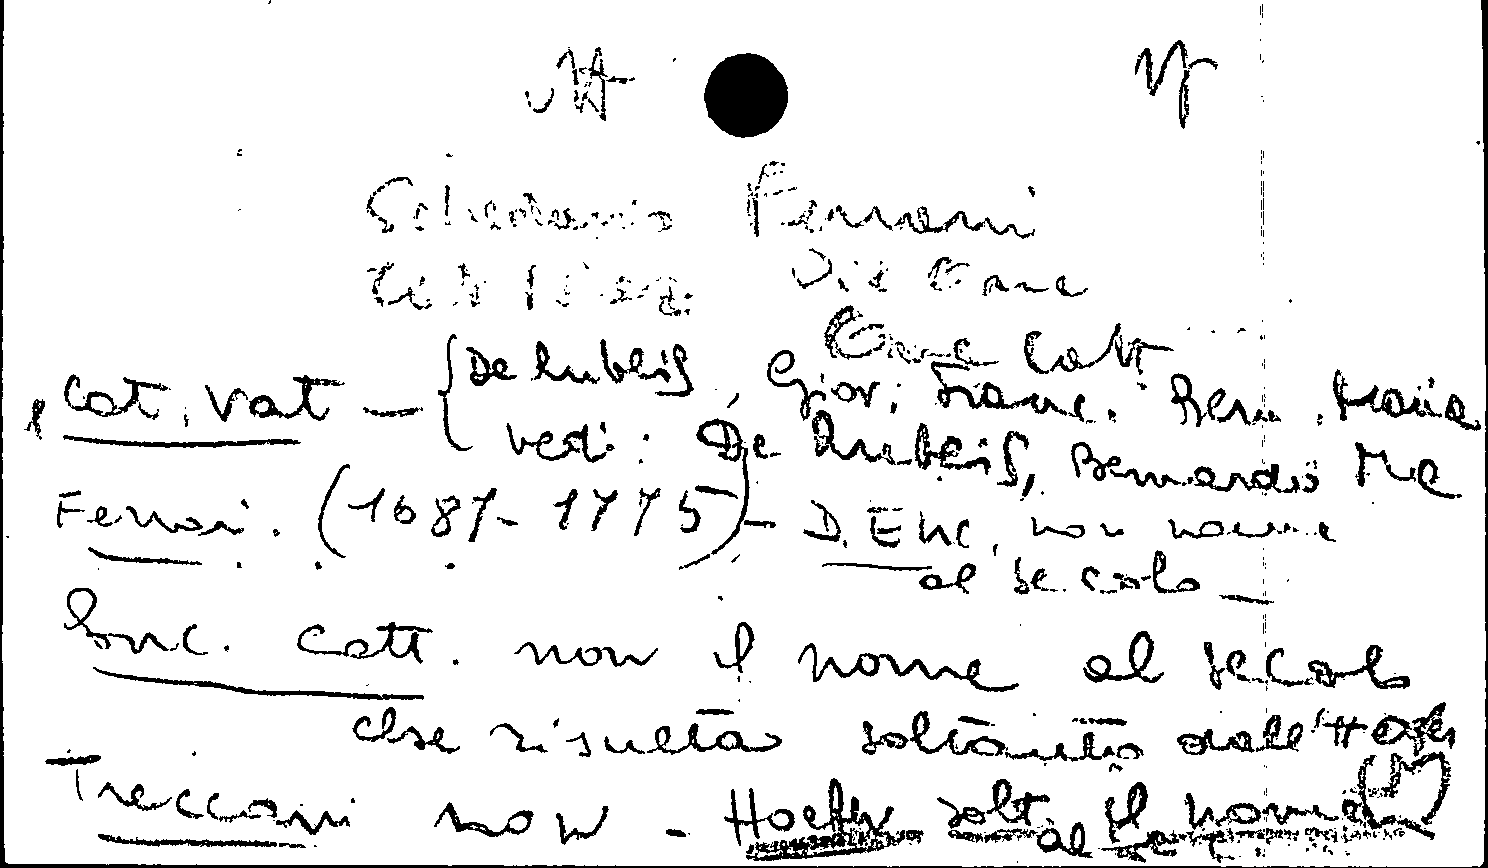 Schedario Ferrari
Diz Enc
Enc Catt
Cat. Vat — { De Rubeis, Giov. Franc. Bern. Maria
vedi: De Rubeis, Bernardo M e
Ferrari. (1687-1775) - D. Enc. non nome
al secolo —
Enc. Catt. non il nome al secolo
che risulta soltanto dall'Hoefer
Treccani non - Hoefer solt. il nome
al sec